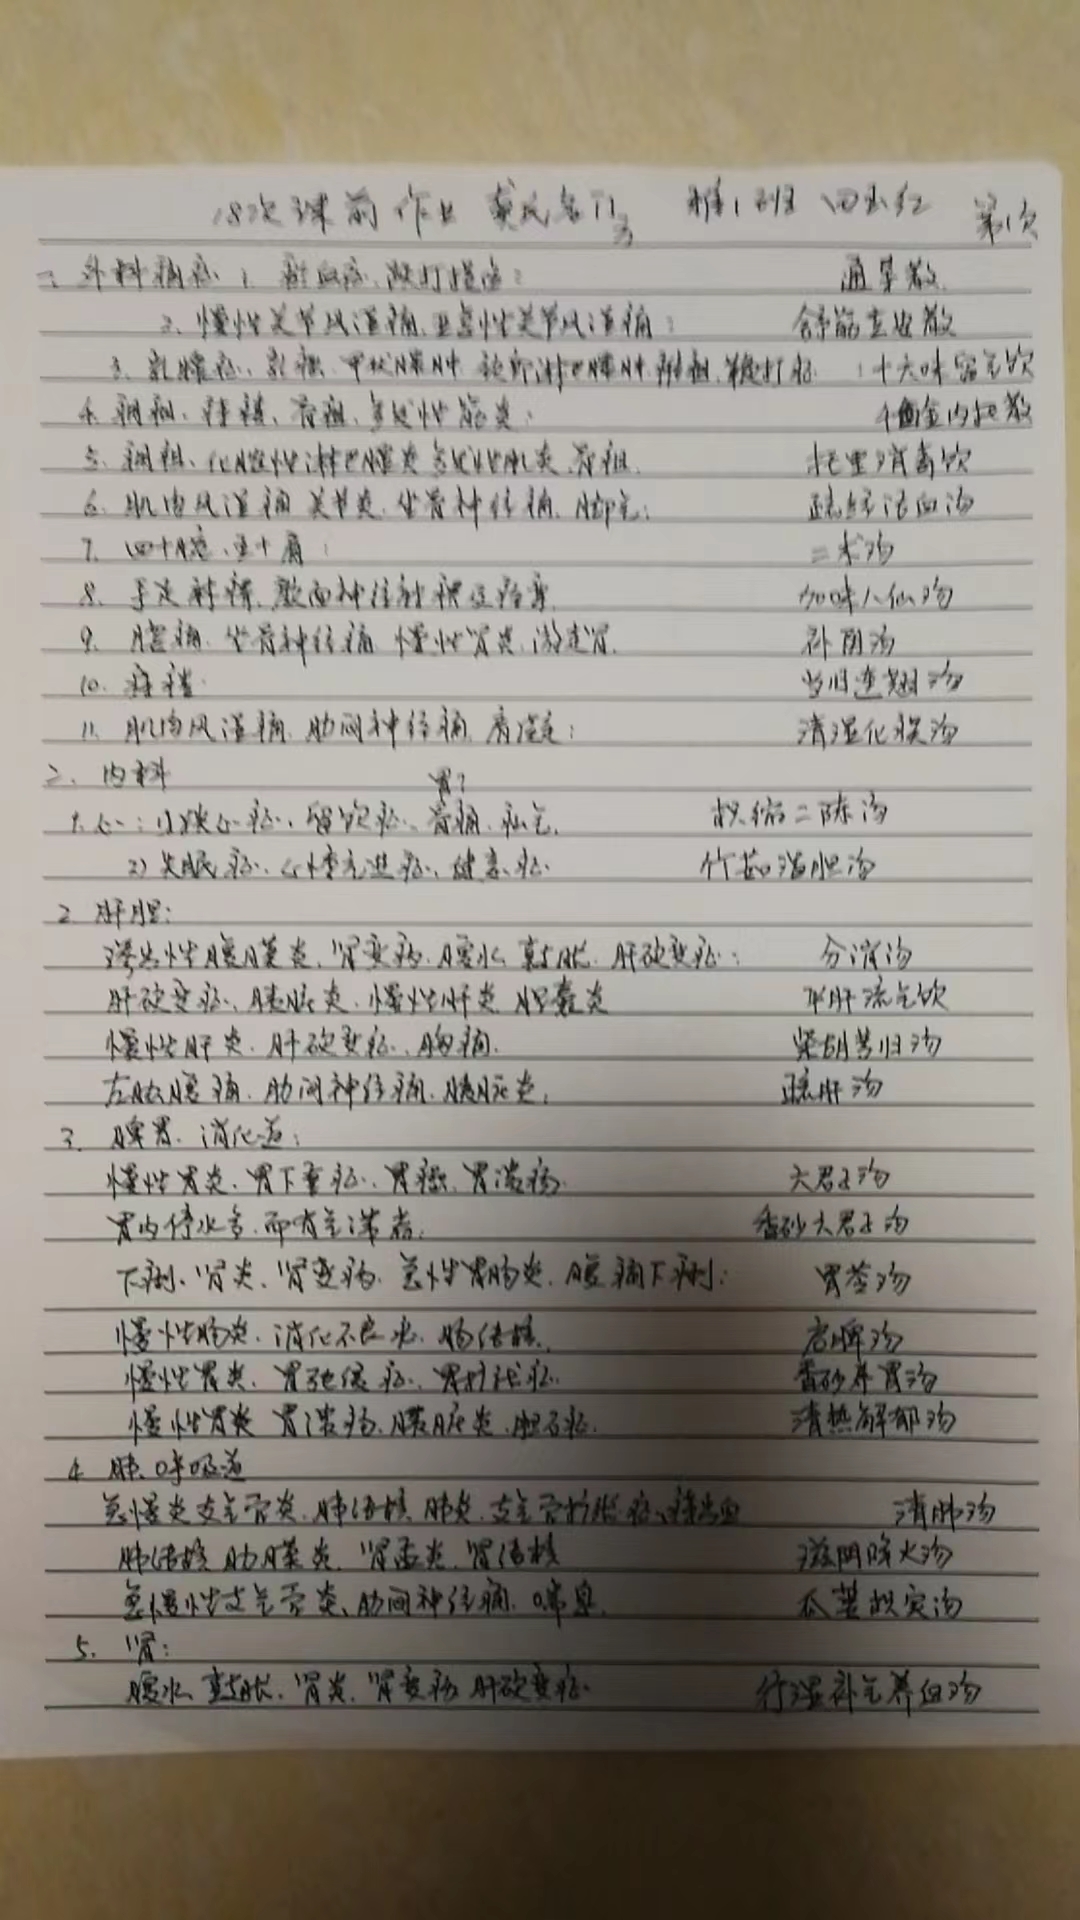 18次课前作业 龚氏名门方 雅1班 田玉红 第1次
一、外科痛症 1. 瘀血症、跌打损伤： 通导散
2. 慢性关节风湿痛、亚急性关节风湿痛： 舒筋立安散
3. 乳腺症、乳癌、甲状腺肿、颈部淋巴腺肿、鞭打症 ：十六味留气饮
4. 痈疽、痔瘘、骨疽、多发性筋炎： 千金内托散
5. 痈疽、化脓性淋巴腺炎 多发性肌炎、骨疽. 托里消毒饮
6. 肌肉风湿痛 关节炎、坐骨神经痛、脚气： 疏经活血汤
7. 四十腕、五十肩： 二术汤
8. 手足麻痹、颜面神经麻痹及痉挛 加味八仙汤
9. 腰痛、坐骨神经痛 慢性肾炎、游走肾. 补阴汤
10. 痔瘘 当归连翘汤
11. 肌肉风湿痛 肋间神经痛、肩凝症： 清湿化痰汤
二、内科 胃？
1. 心： 1) 狭心症、留饮症、胃痛、疝气. 枳缩二陈汤
2) 失眠症、心悸亢进症、健忘症 竹茹温胆汤
2. 肝胆：
渗出性腹膜炎、肾变病、腹水 鼓胀、肝硬变症： 分消汤
肝硬变症、胰脏炎、慢性肝炎、胆囊炎 平肝流气饮
慢性肝炎、肝硬变症、胸痛. 柴胡芎归汤
左肋腹痛、肋间神经痛、胰脏炎： 疏肝汤
3. 脾胃、消化道：
慢性胃炎、胃下垂症、胃癌、胃溃疡. 六君子汤
胃内停水多、而有气滞者. 香砂六君子汤
下痢、肾炎、肾变病、急性胃肠炎、腹痛下痢： 胃苓汤
慢性肠炎、消化不良水、肠结核. 启脾汤
慢性胃炎、胃弛缓症、胃扩张症 香砂养胃汤
慢性胃炎 胃溃疡、胰脏炎、胆石症. 清热解郁汤
4. 肺、呼吸道
急慢炎支气管炎、肺结核、肺炎、支气管扩张症 清肺汤
肺结核 肋膜炎、肾盂炎、肾结核 滋阴降火汤
急慢性支气管炎、肋间神经痛、喘息. 瓜蒌枳实汤
5. 肾：
腹水、鼓胀、肾炎、肾变病 肝硬变症 行湿补气养血汤